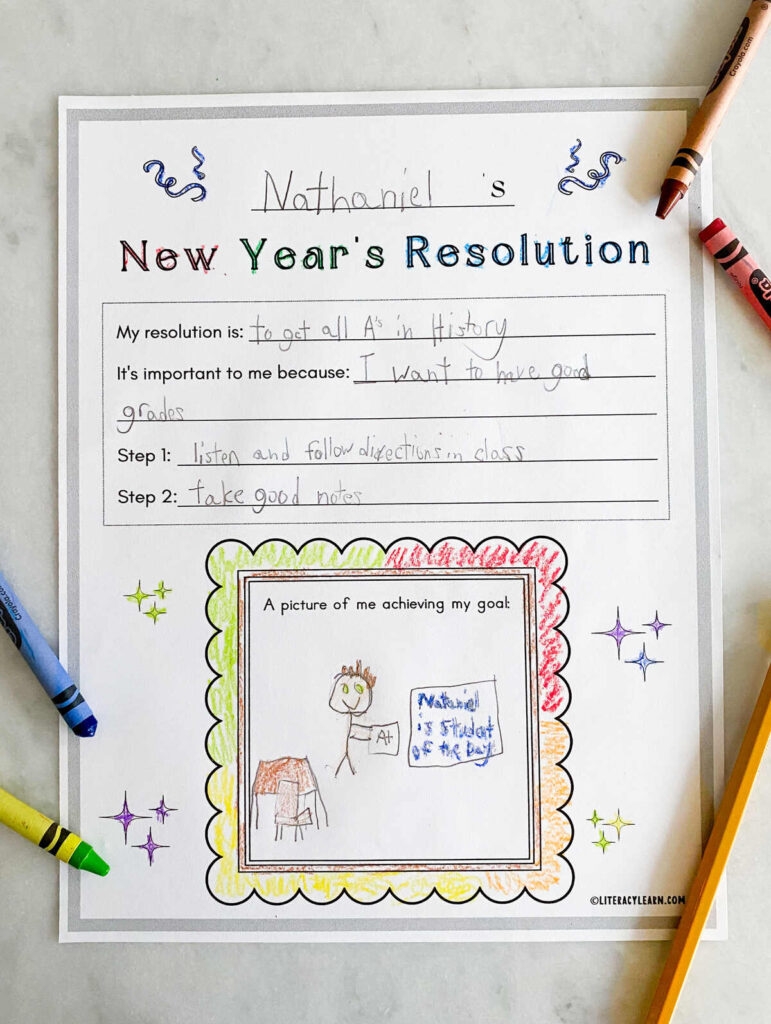 Nathaniel 's
New Year's Resolution
My resolution is: to get all A's in History
It's important to me because: I want to have good
grades
Step 1: listen and follow directions in class
Step 2: take good notes
A picture of me achieving my goal:
A+
Nathaniel
is Student
of the Day
©LITERACYLEARN.COM
Crayola.com
Crayola.com